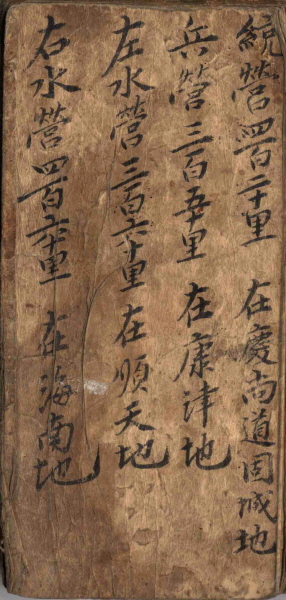 統營四百二十里 在慶尚道固城地
兵營三百五十里 在康津地
左水營三百六十里 在順天地
右水營四百六十里 在海南地